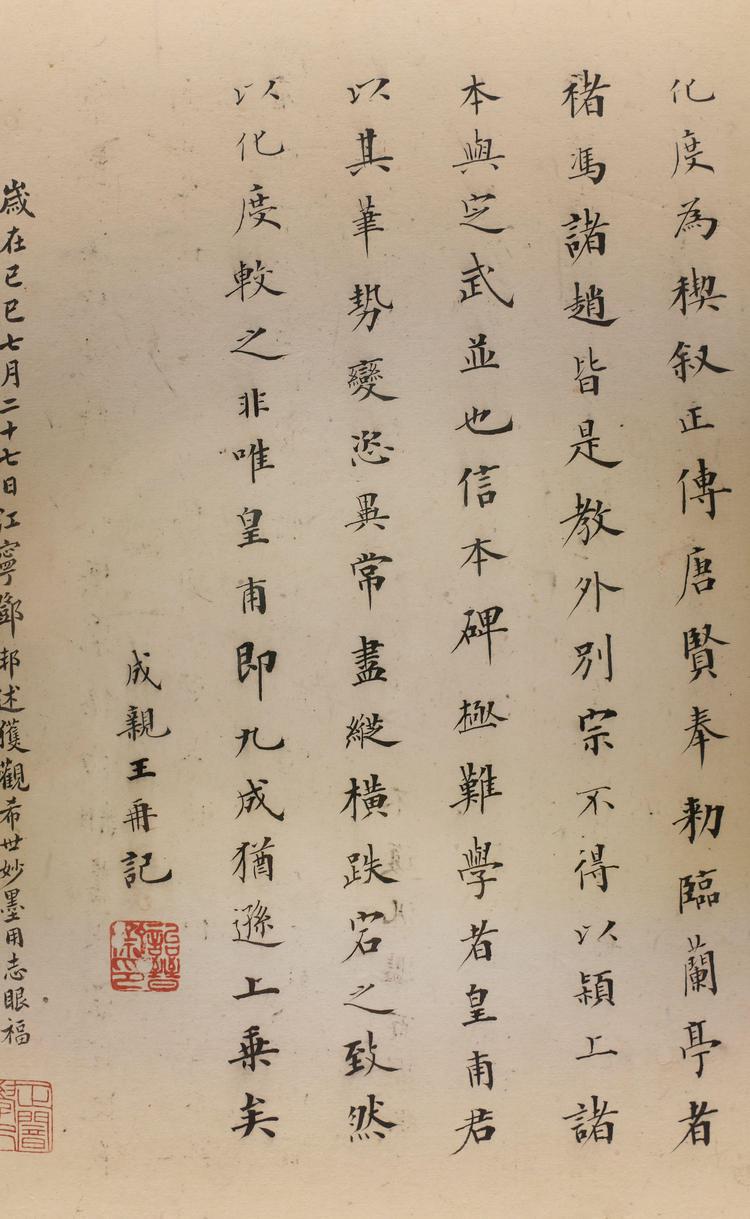 化度為稧叙正傳唐賢奉勑臨蘭亭者
褚馮諸趙皆是教外別宗不得以穎上諸
本與㝎武並也信本碑極難學者皇甫君
以其筆勢變恣異常盡縱橫跌宕之致然
以化度較之非唯皇甫即九成猶遜上乗矣
成親王再記
詒晉齋印
歲在己巳七月二十七日江寧鄧邦述獲觀希世妙墨用志眼福